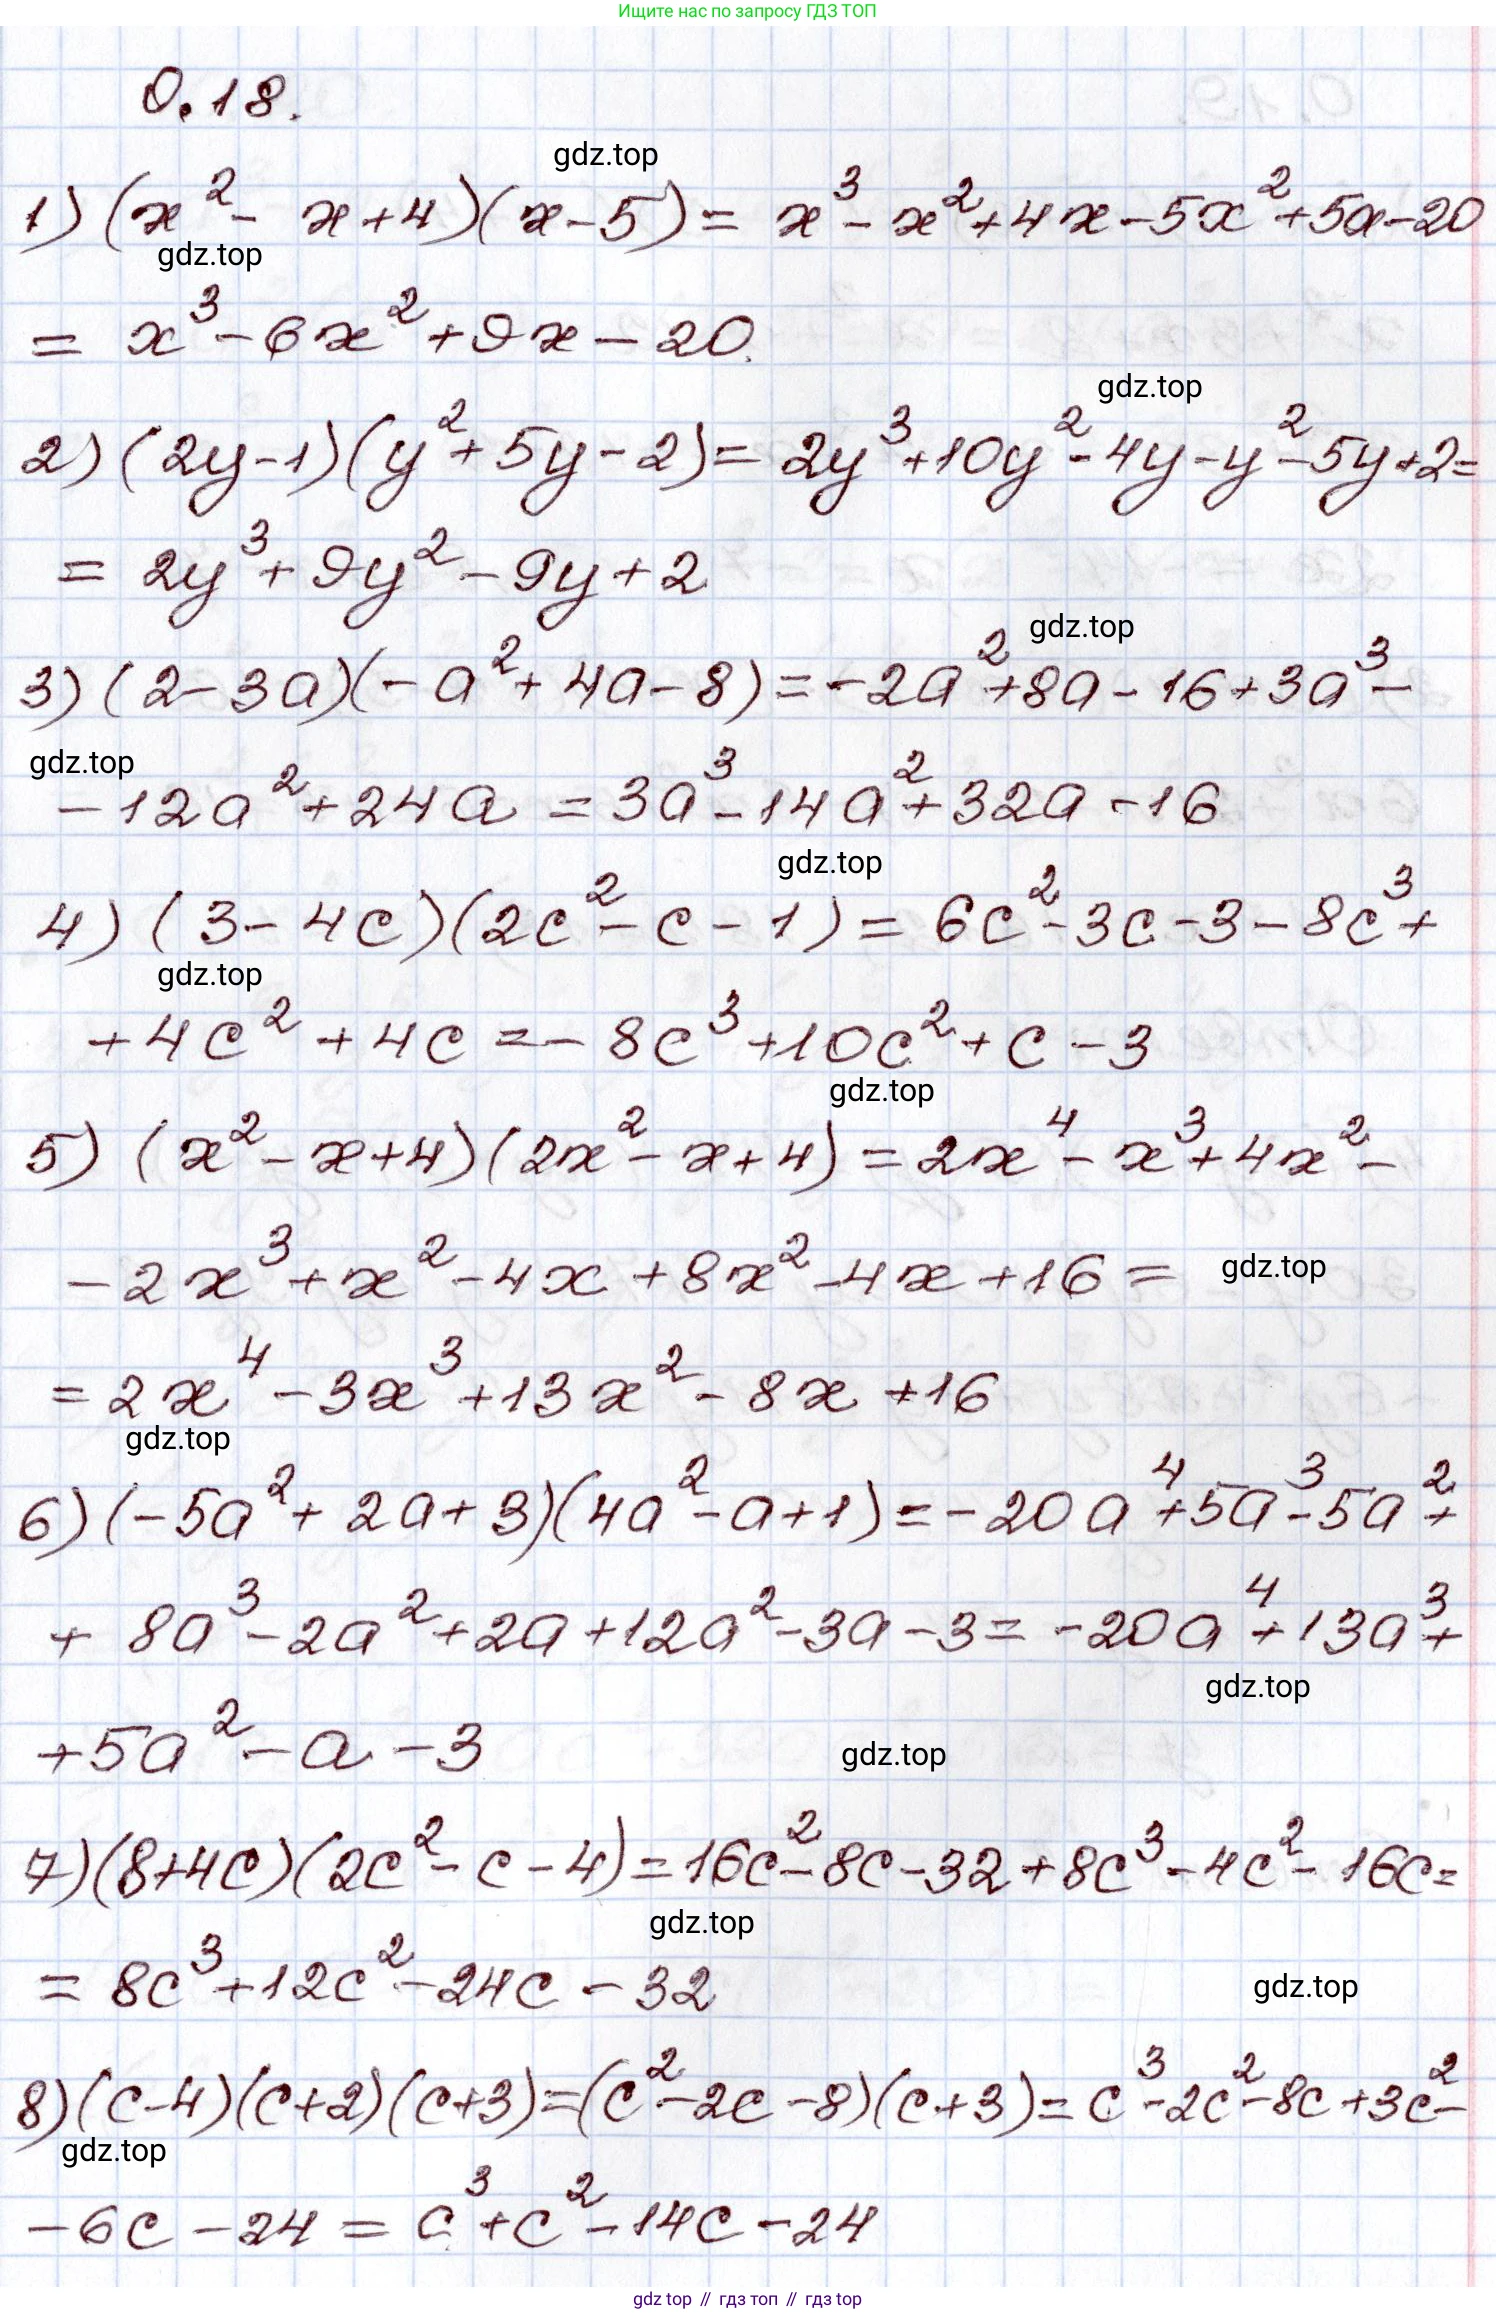 Ищите нас по запросу ГДЗ ТОП
0.18.
gdz.top
1) (x² - x + 4)(x - 5) = x³ - x² + 4x - 5x² + 5x - 20
gdz.top
= x³ - 6x² + 9x - 20.
gdz.top
2) (2y - 1)(y² + 5y - 2) = 2y³ + 10y² - 4y - y² - 5y + 2 =
= 2y³ + 9y² - 9y + 2
gdz.top
3) (2 - 3a)(-a² + 4a - 8) = -2a² + 8a - 16 + 3a³ -
gdz.top
- 12a² + 24a = 3a³ - 14a² + 32a - 16
gdz.top
4) (3 - 4c)(2c² - c - 1) = 6c² - 3c - 3 - 8c³ +
gdz.top
+ 4c² + 4c = - 8c³ + 10c² + c - 3
gdz.top
5) (x² - x + 4)(2x² - x + 4) = 2x⁴ - x³ + 4x² -
- 2x³ + x² - 4x + 8x² - 4x + 16 =
gdz.top
= 2x⁴ - 3x³ + 13x² - 8x + 16
gdz.top
6) (-5a² + 2a + 3)(4a² - a + 1) = - 20a⁴ + 5a³ - 5a² +
+ 8a³ - 2a² + 2a + 12a² - 3a - 3 = -20a⁴ + 13a³ +
gdz.top
+ 5a² - a - 3
gdz.top
7) (8 + 4c)(2c² - c - 4) = 16c² - 8c - 32 + 8c³ - 4c² - 16c =
gdz.top
= 8c³ + 12c² - 24c - 32
gdz.top
8) (c - 4)(c + 2)(c + 3) = (c² - 2c - 8)(c + 3) = c³ - 2c² - 8c + 3c² -
gdz.top
- 6c - 24 = c³ + c² - 14c - 24
gdz top // гдз топ // гдз top